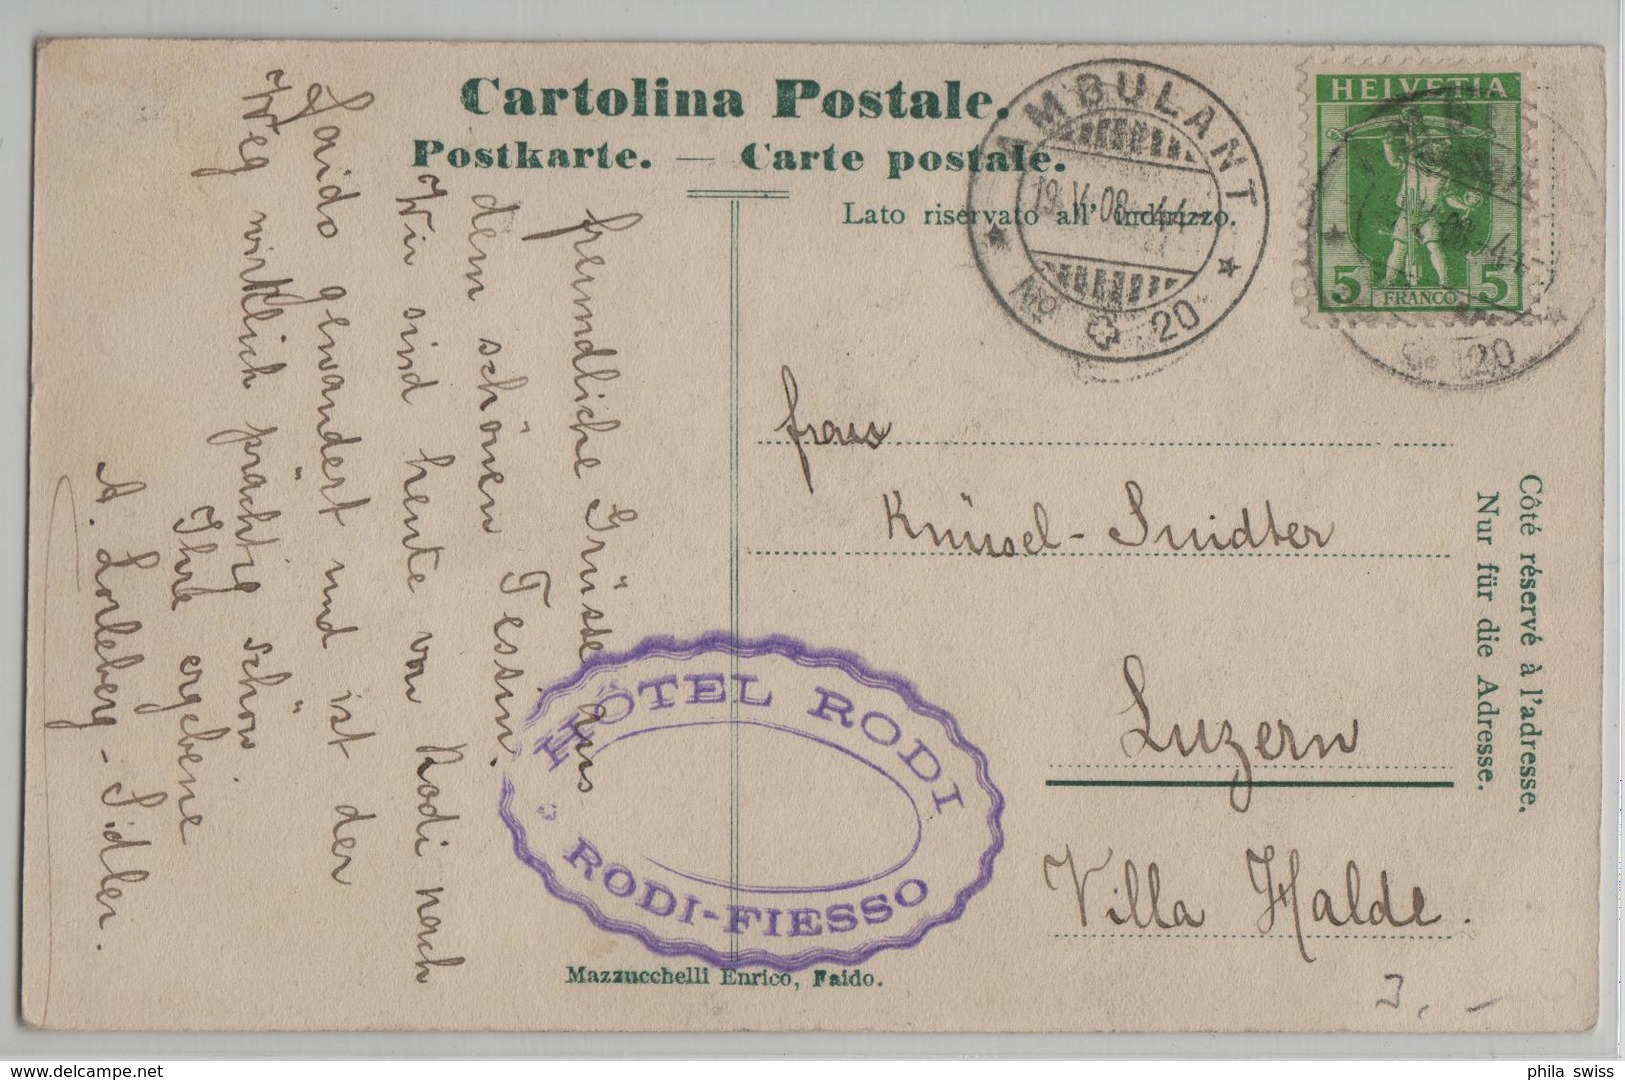 Cartolina Postale.
Postkarte. — Carte postale.
Lato riservato all' indirizzo.
AMBULANT
19.V.08.-44-
No 20
HELVETIA
5 FRANCO 5
20
Côté réservé à l'adresse.
Nur für die Adresse.
freundliche Grüsse aus
dem schönen Tessin.
Wir sind heute von Rodi nach
Faido gewandert und ist der
Weg wirklich prächtig schön
Ihre ergebene
A. -Sidler.
frau
Knüsel-Suidter
Luzern
Villa Halde.
HÔTEL RODI
RODI-FIESSO
Mazzucchelli Enrico, Faido.
3.-
delcampe.net
phila swiss